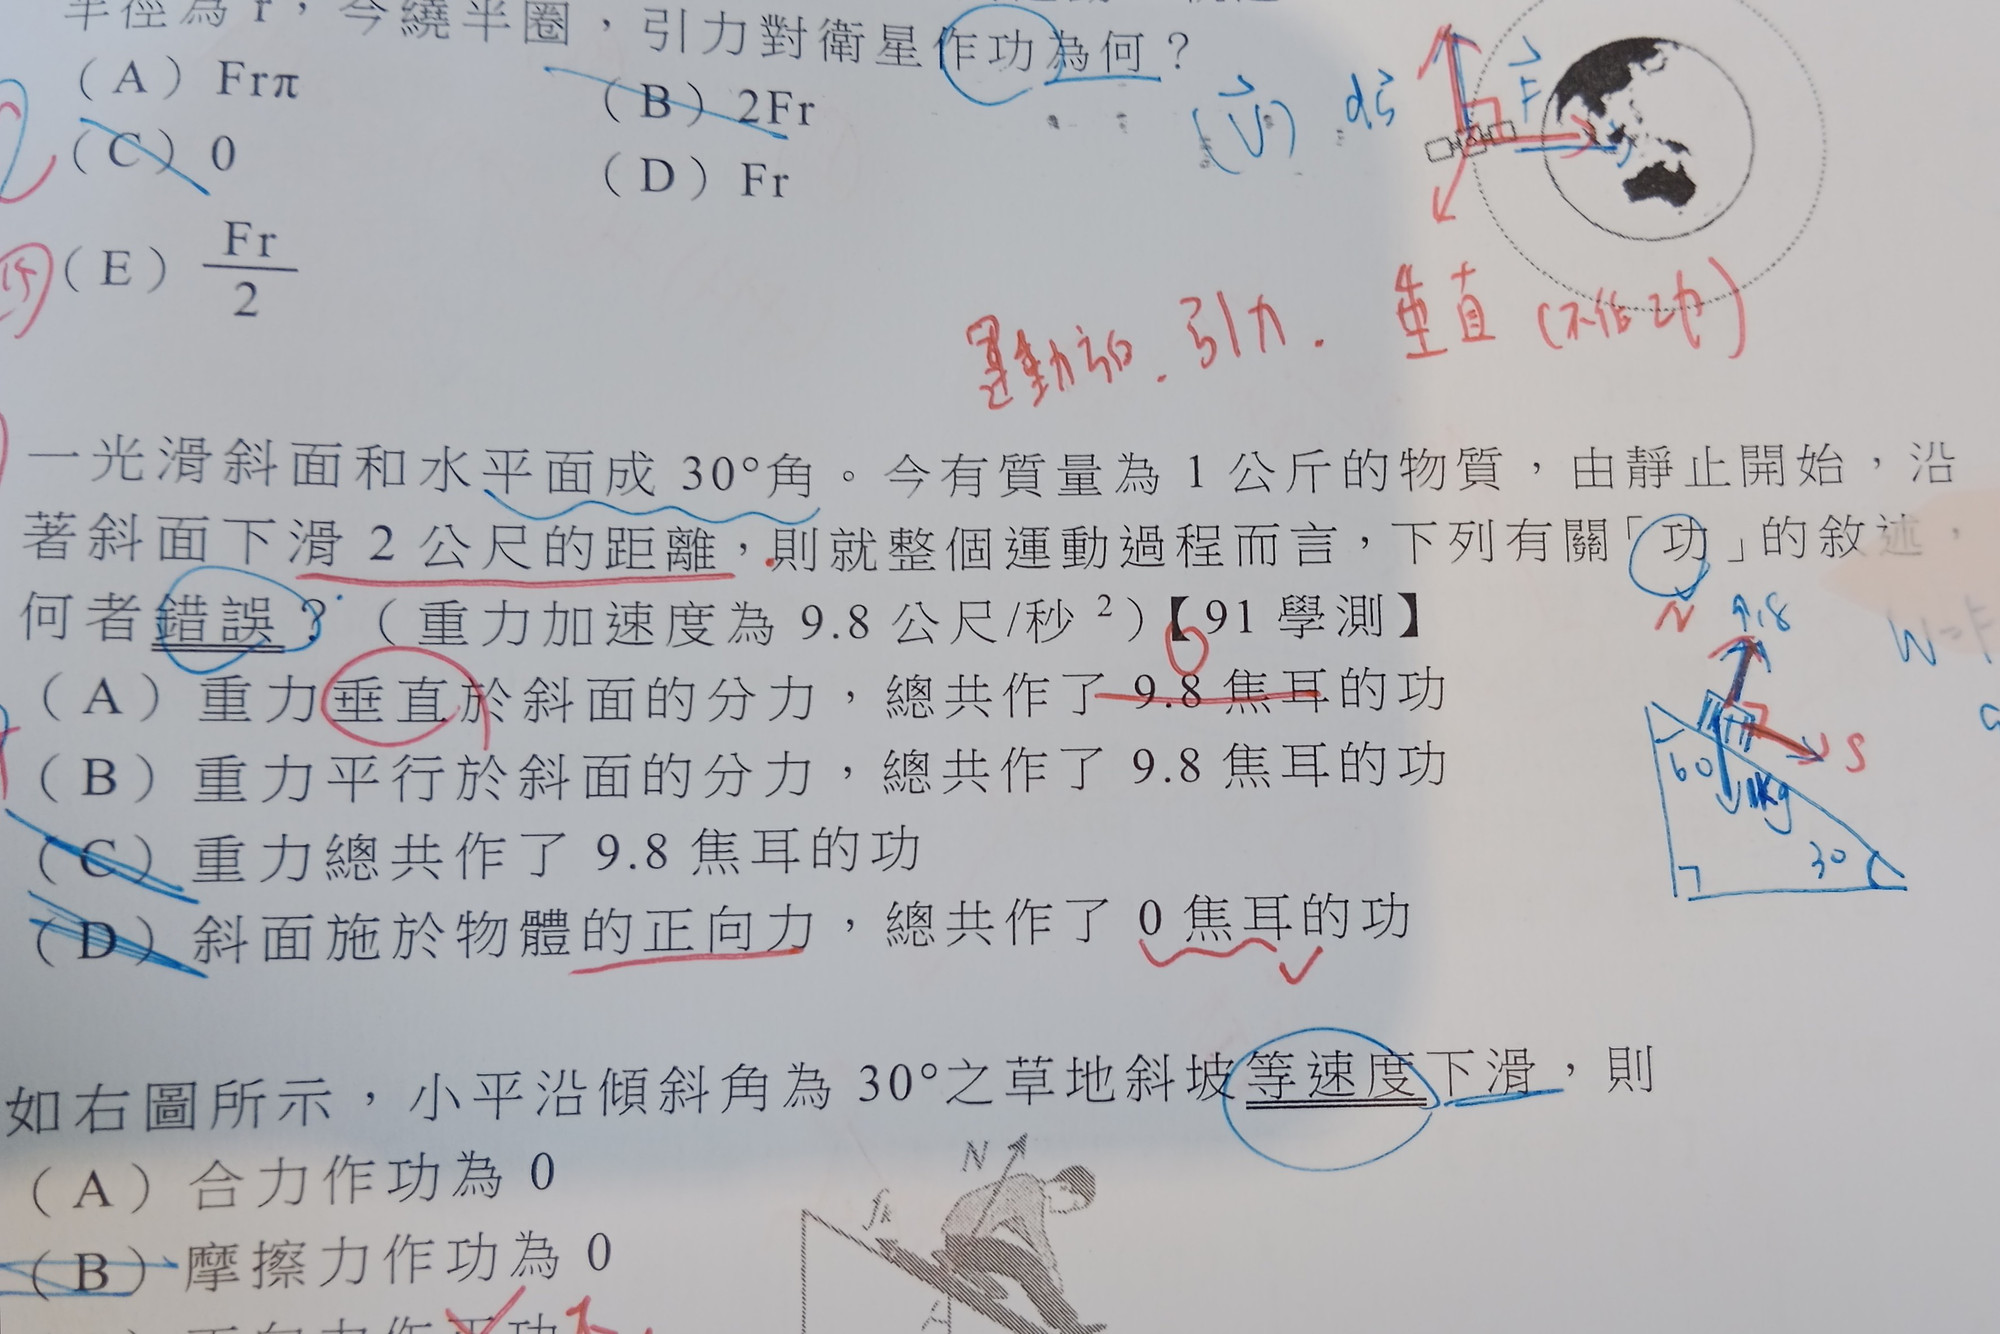 半徑為 r，今繞半圈，引力對衛星作功為何？
(A) Frπ
(B) 2Fr
(V⃗) ds⃗ F⃗
(C) 0
(D) Fr
(E) Fr/2
運動方向．引力．垂直（不作功）
一光滑斜面和水平面成 30°角。今有質量為 1 公斤的物質，由靜止開始，沿
著斜面下滑 2 公尺的距離，則就整個運動過程而言，下列有關「功」的敘述，
何者錯誤？（重力加速度為 9.8 公尺/秒²）【91 學測】
N 9.8
W=F
(A) 重力垂直於斜面的分力，總共作了 9.8 焦耳的功
0
(B) 重力平行於斜面的分力，總共作了 9.8 焦耳的功
S
60 1kg
(C) 重力總共作了 9.8 焦耳的功
30
(D) 斜面施於物體的正向力，總共作了 0 焦耳的功
如右圖所示，小平沿傾斜角為 30°之草地斜坡等速度下滑，則
N
(A) 合力作功為 0
fk
(B) 摩擦力作功為 0
正向力作正功